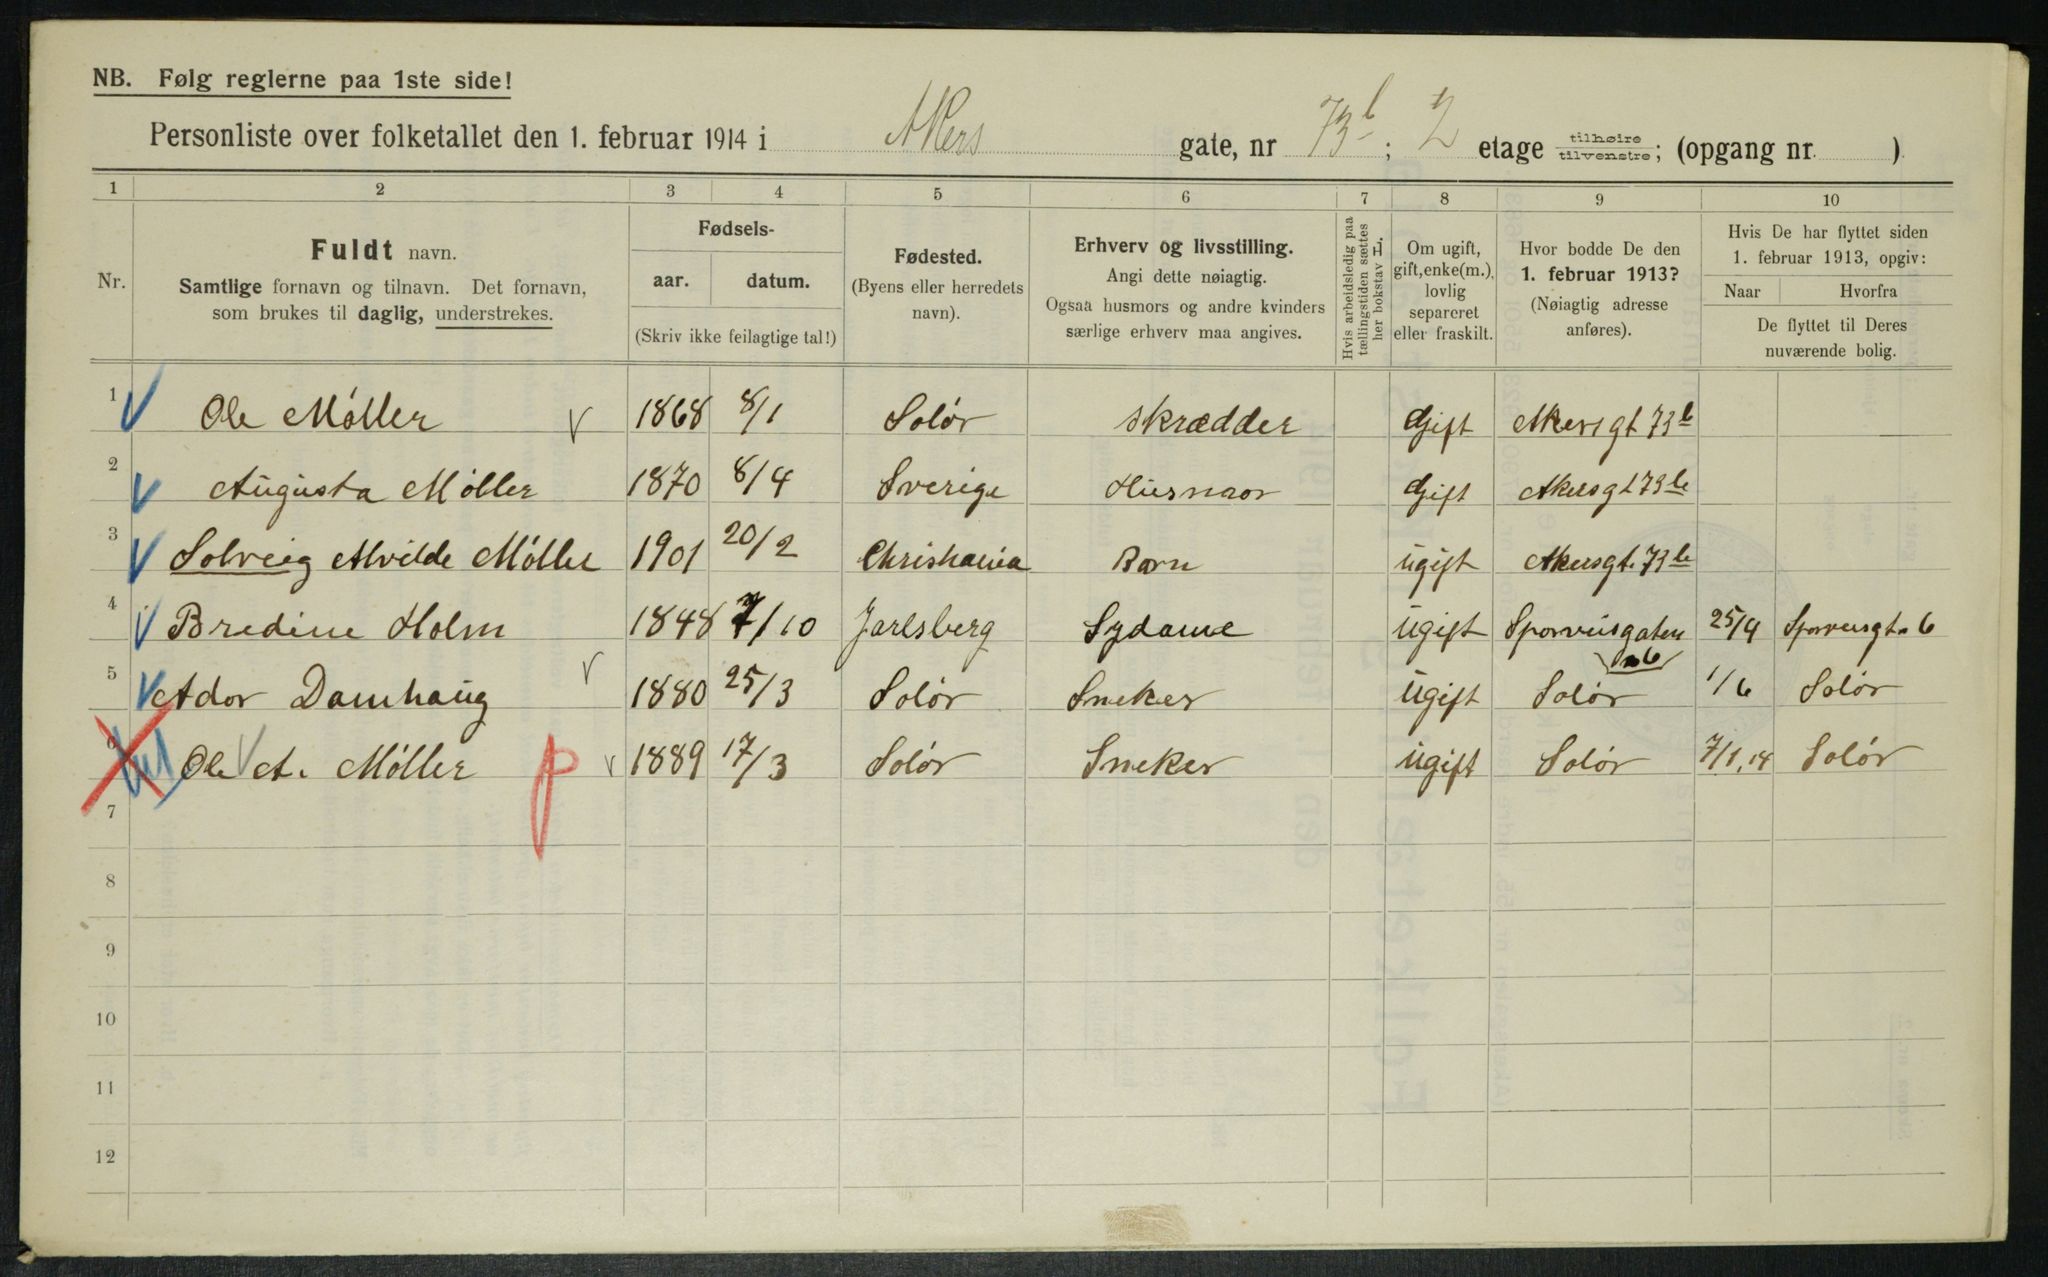 NB. Følg reglerne paa 1ste side!
Personliste over folketallet den 1. februar 1914 i Akers gate, nr 73b; 2 etage tilhøire tilvenstre; (opgang nr. )
1 2 3 4 5 6 7 8 9 10
Nr.
Fuldt navn.
Samtlige fornavn og tilnavn. Det fornavn,
som brukes til daglig, understrekes.
Fødsels-
aar. datum.
(Skriv ikke feilagtige tal!)
Fødested.
(Byens eller herredets
navn).
Erhverv og livsstilling.
Angi dette nøiagtig.
Ogsaa husmors og andre kvinders
særlige erhverv maa angives.
Hvis arbeidsledig paa
tællingstiden sættes
her bokstav H.
Om ugift,
gift, enke(m.),
lovlig
separeret
eller fraskilt.
Hvor bodde De den
1. februar 1913?
(Nøiagtig adresse
anføres).
Hvis De har flyttet siden
1. februar 1913, opgiv:
Naar Hvorfra
De flyttet til Deres
nuværende bolig.
1 Ole Møller 1868 8/1 Solør Skrædder Gift Akersgt 73b
2 Augusta Møller 1870 8/4 Sverige Husmor Gift Akersgt 73b
3 Solveig Alvilde Møller 1901 20/2 Christiania Barn ugift Akersgt. 73b
4 Bredine Holm 1848 7/10 Jarlsberg Sydame ugift Sporveisgaten n6 25/4 Sporveisgt. 6
5 Ador Damhaug 1880 25/3 Solør Sneker ugift Solør 1/6 Solør
6 Ole A. Møller p 1889 17/3 Solør Sneker ugift Solør 7/1, 14 Solør
7
8
9
10
11
12